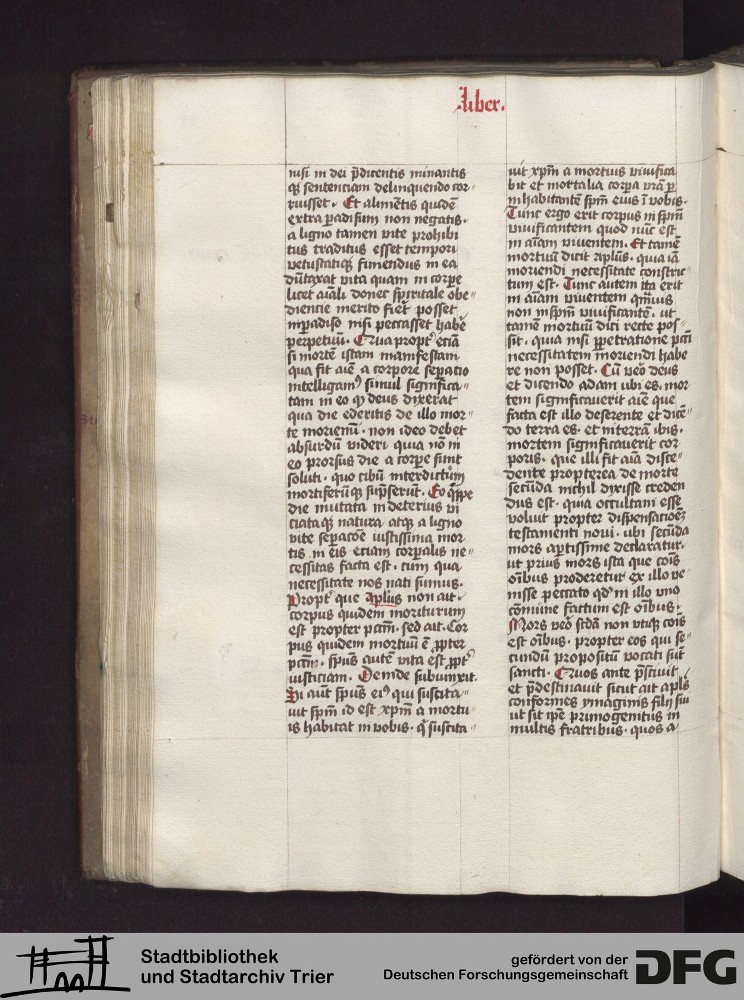 Liber.
nisi in dei p̄dicentis minantis
q̄ sentenciam delinquendo cor=
ruisset. Et alimentis quidē
extra padisum non negatis.
a ligno tamen vite prohibi
tus traditus esset tempori
vetustatiq̄ finiendus in ea
dūtaxat vita quam in corpe
licet aīali donec spiritale obe=
diencie merito fieret posset
in padiso nisi peccasset habē
perpetuū. Qua propt̾ eciā
si mortē istam manifestam
qua fit aīe a corpore sepacio
intelligam9 simul significa=
tam in eo qđ deus dixerat
qua die ederitis de illo mor=
te moriemī. non ideo debet
absurdū videri quia nō in
eo prorsus die a corpe sunt
soluti. quo cibū interdictum
mortiferūq̄ sūpserūt. Eo q̄ppe
die mutata in deterius vi
ciataq̄ natura. atq̄ a ligno
vite sepacōe iustissima mor
tis in eis eciam corpalis ne=
cessitas facta est. cum qua
necessitate nos nati sumus.
Propt̾ que aplūs non ait.
corpus quidem moriturum
est propter pccm̄. sed ait. Cor
pus quidem mortuū ē ppter
pccm̄. spūs autē vita est ppt̾
iusticiam. Deinde subiunxit.
Si aūt spūs ei9 qui suscita=
uit spm̄ id est xpm̄ a mortu=
is habitat in vobis. q̄ suscita=
uit xpm̄ a mortuis viuifica
bit et mortalia corpa vrā p̄
inhabitantē spm̄ eius ī vobis.
Tunc ergo erit corpus in spm̄
viuificantem quod nūc est
in aīam viuentem. Et tamē
mortuū dicit aplūs. quia iā
moriendi necessitate constric=
tum est. Tunc autem ita erit
in aīam viuentem qm̄uis
non in spm̄ viuificantē. ut
tamē mortuū dici recte pos=
sit. quia nisi ppetratione pcti
necessitatem moriendi habe
re non posset. Cū vēo deus
et dicendo adam ubi es. mor
tem significauerit aīe que
facta est illo deserente et dicē=
do terra es. et in terrā ibis.
mortem significauerit cor
poris. que illi fit aīa disce=
dente propterea de morte
secūda nichil dixisse creden
dus est. quia occultam esse
voluit propter dispensacioēʒ
testamenti noui. ubi secūda
mors aptissime declaratur.
ut prius mors ista que cōis
oībus proderetur ex illo ve=
nisse peccato qđ in illo vno
cōmune factum est oībus.
Mors vēo scđa non vtiq̄ cōis
est oībus. propter eos qui se=
cundū propositū vocati sūt
sancti. Quos ante p̄sciuit
et p̄destinauit sicut ait aplūs
conformes ymaginis filij sui
ut sit ip̄e primogenitus in
multis fratribus. quos a=
Stadtbibliothek
und Stadtarchiv Trier
gefördert von der
Deutschen Forschungsgemeinschaft
DFG